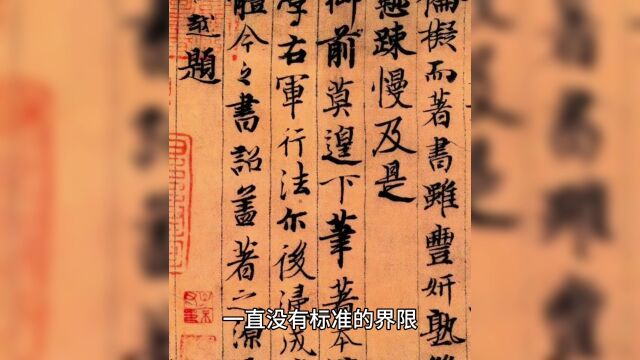 擬而著書雖豐妍熟
踈慢及是
御前莫遑下筆著本
學右軍行法尓後浸成
體今之書詔蓋著之源
題
一直没有标准的界限